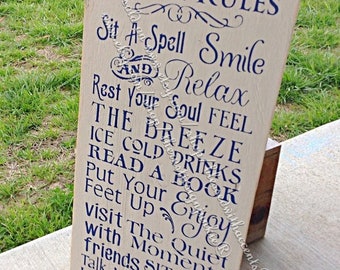 RULES
Sit A Spell Smile
AND Relax
Rest Your Soul FEEL
THE BREEZE
ICE COLD DRINKS
READ A BOOK
Put Your Enjoy
Feet Up
visit The Quiet
with Moment
friends
Talk